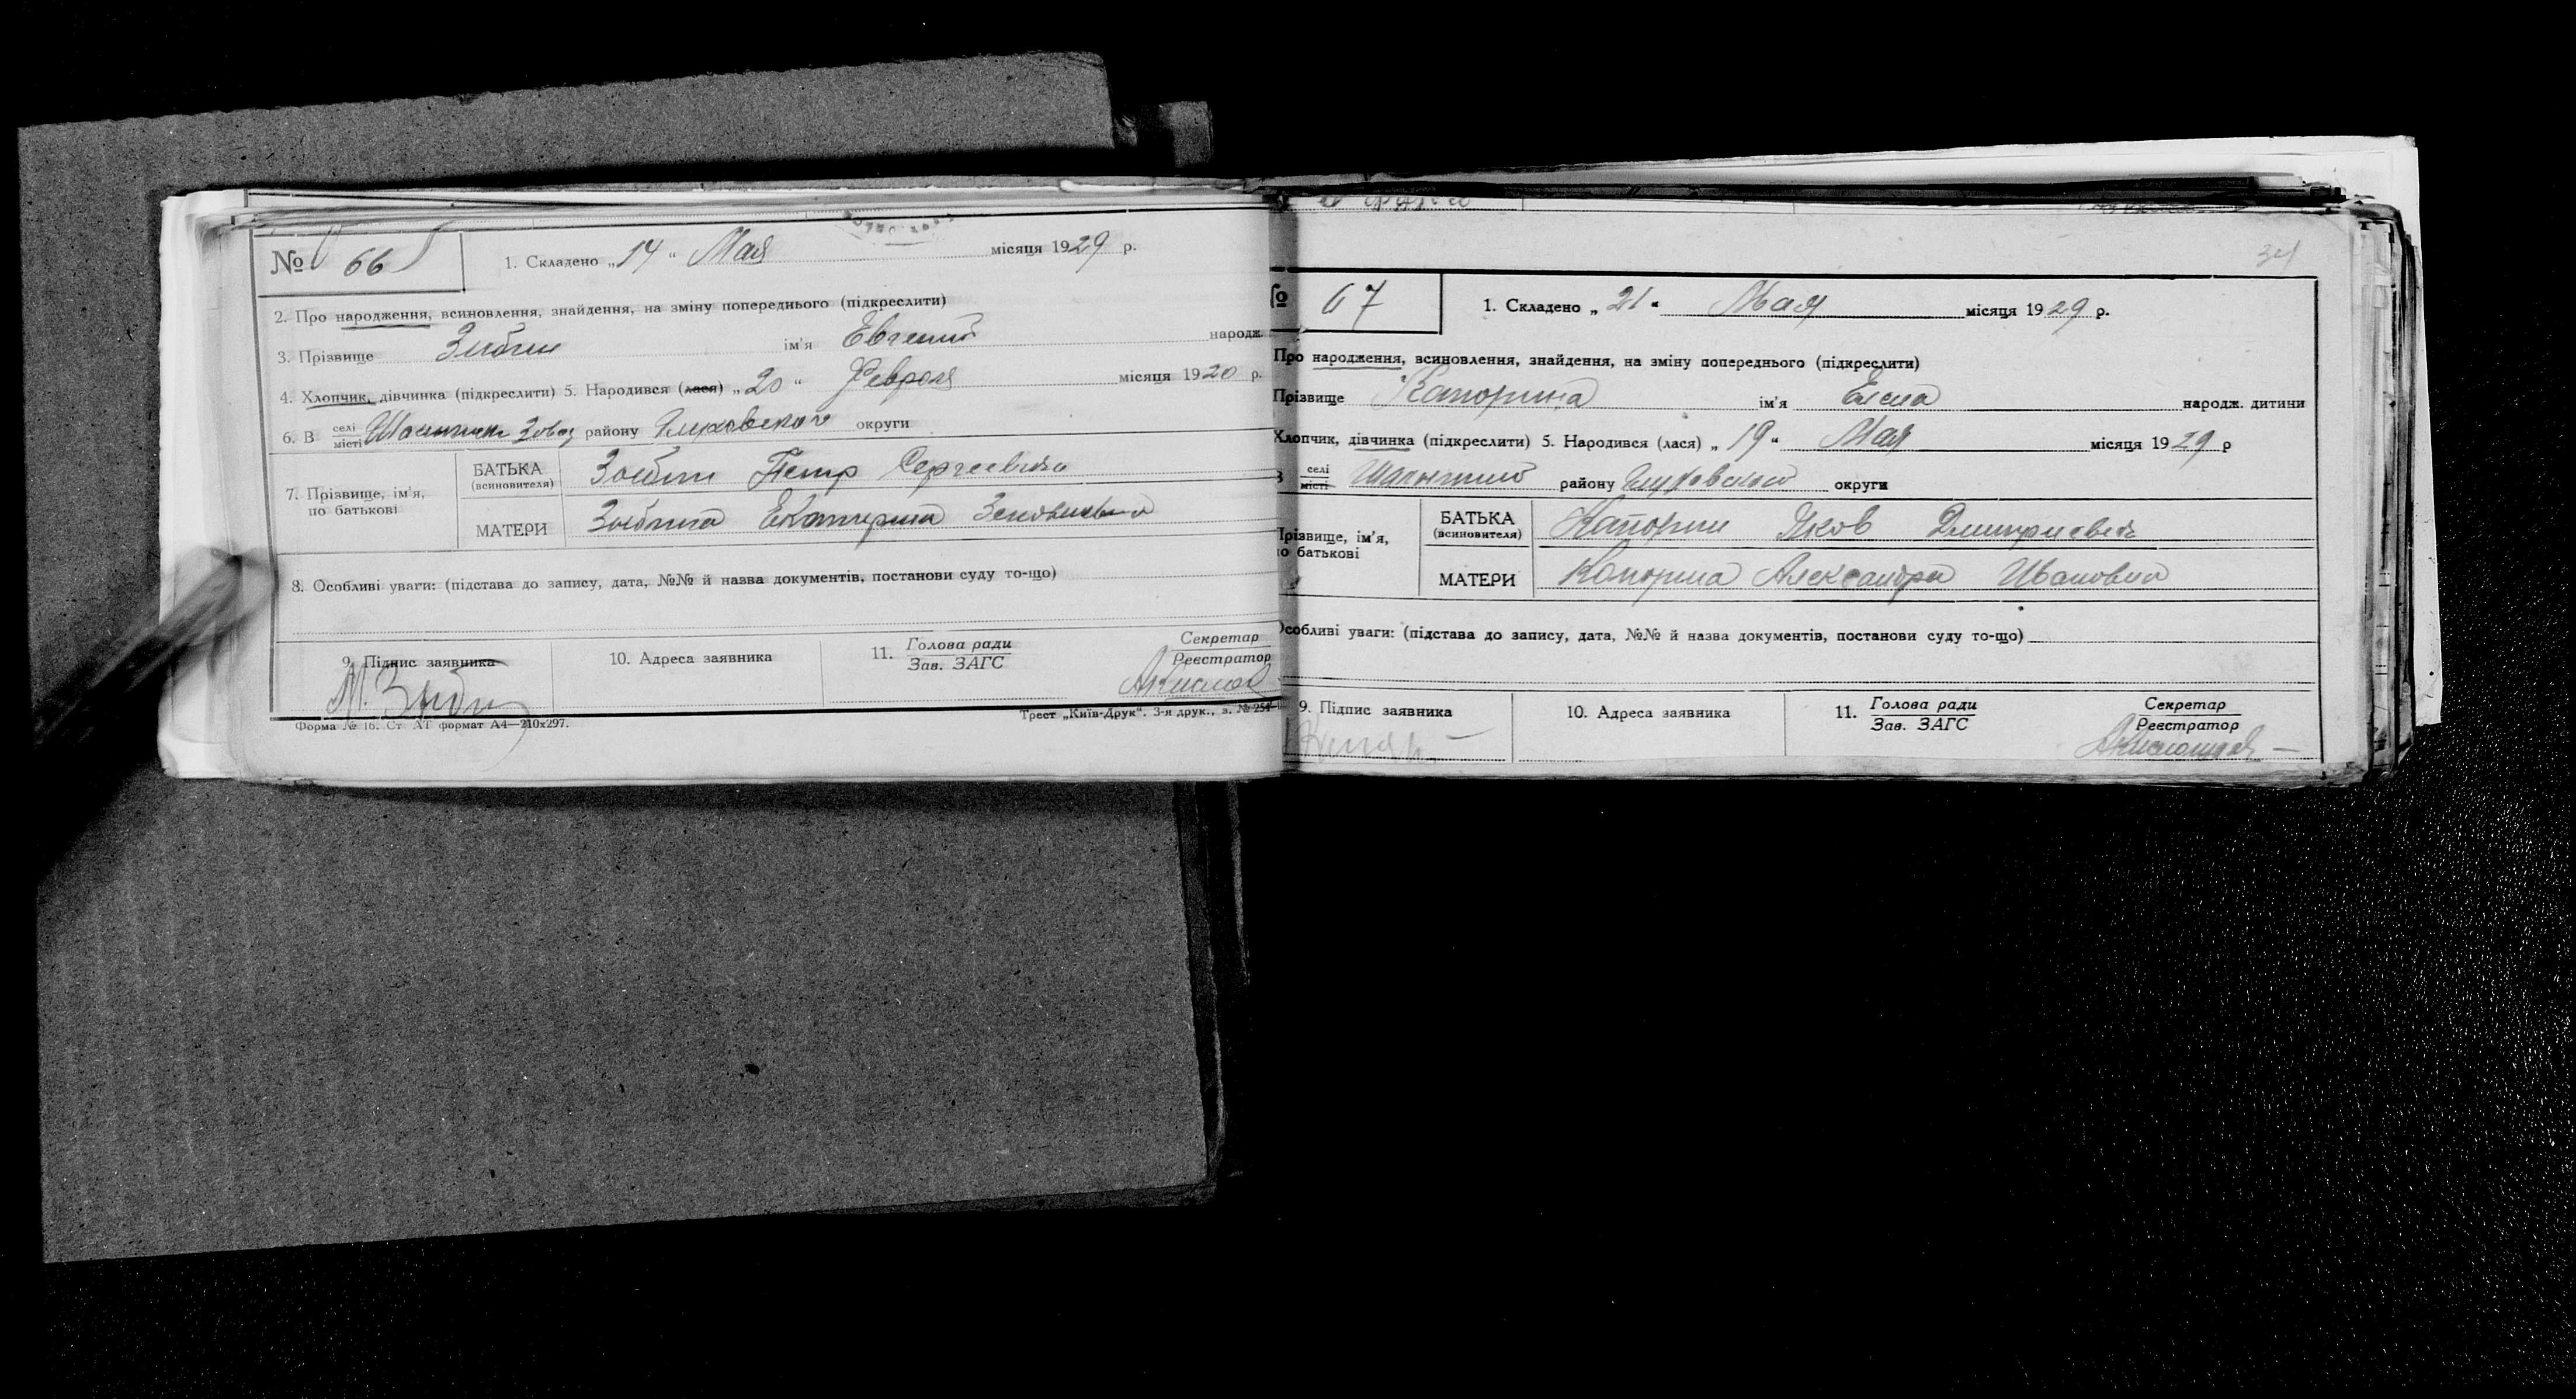 № 66
1. Складено „14“ Мая місяця 1929 р.
2. Про народження, всиновлення, знайдення, на зміну попереднього (підкреслити)
3. Прізвище Зыбин ім'я Евгений народж.
4. Хлопчик, дівчинка (підкреслити) 5. Народився (лася) „20“ Февраля місяця 1920 р.
6. В селі місті Завод району Глуховского округи
7. Прізвище, ім'я, по батькові
БАТЬКА (всиновителя) Зыбин Петр Сергеевич
МАТЕРИ Зыбина Екатерина
8. Особливі уваги: (підстава до запису, дата, №№ й назва документів, постанови суду то-що)
9. Підпис заявника
10. Адреса заявника
11. Голова ради Зав. ЗАГС
Секретар Реєстратор
Форма № 1б. Ст АТ формат А4—210х297.
Трест „Київ-Друк“. 3-я друк., з. № 254
34
№ 67
1. Складено „21“ Мая місяця 1929 р.
Про народження, всиновлення, знайдення, на зміну попереднього (підкреслити)
Прізвище Капорина ім'я Елена народж. дитини
Хлопчик, дівчинка (підкреслити) 5. Народився (лася) „19“ Мая місяця 1929 р
В селі місті району Глуховской округи
Прізвище, ім'я, по батькові
БАТЬКА (всиновителя) Капорин Яков Дмитриевич
МАТЕРИ Капорина Александра Ивановна
Особливі уваги: (підстава до запису, дата, №№ й назва документів, постанови суду то-що)
9. Підпис заявника
10. Адреса заявника
11. Голова ради Зав. ЗАГС
Секретар Реєстратор